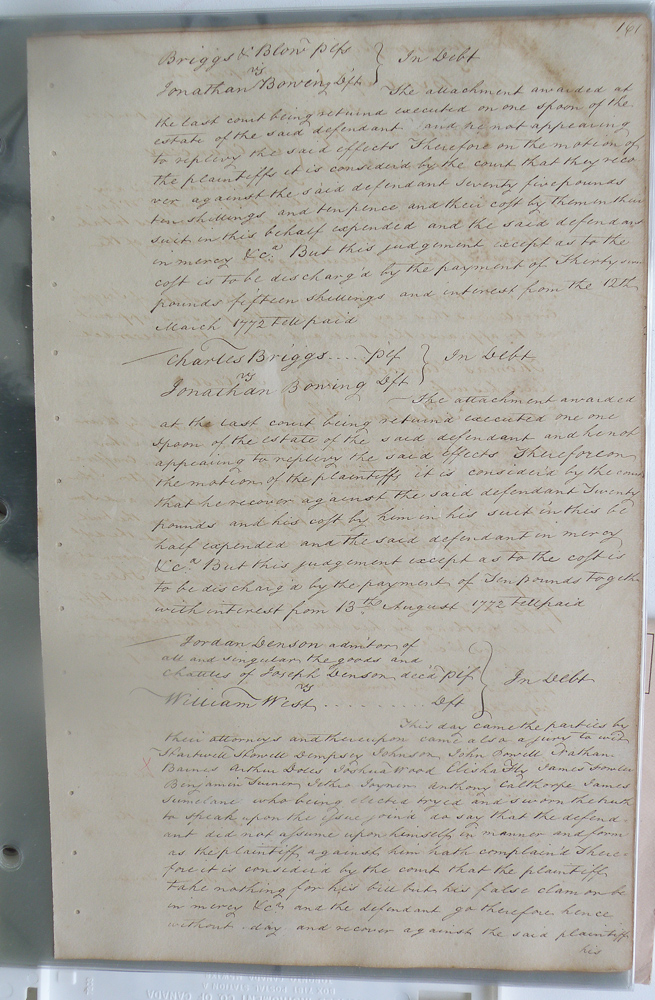 161
Briggs & Blow plfs } In Debt
vs
Jonathan Bowing Dft
The attachment awarded at
the last court being returnd executed on one spoon of the
estate of the said defendant and he not appearing
to replevy the said effects Therefore on the motion of
the plaintiffs it is considerd by the court that they reco
ver against the said defendant Seventy five pounds
ten shillings and ten pence and their cost by them in their
suit in this behalf expended and the said defendant
in mercy &c.a But this judgement except as to the
cost is to be discharg'd by the payment of Thirty
pounds fifteen shillings and interest from the 12th
March 1772 till paid
Charles Briggs .... Plf } In Debt
vs
Jonathan Bowing Dft
The attachment awarded
at the last court being returnd executed one one
spoon of the estate of the said defendant and he not
appearing to replevy the said effects Thereforeon
the motion of the plaintiffs it is considerd by the court
that he recover against the said defendant Twenty
pounds and his cost by him in his suit in this be
half expended and the said defendant in mercy
&c.a But this judgement except as to the cost is
to be discharg'd by the payment of Ten pounds togethr
with interest from 13th August 1772 till paid
Jordan Denson admitor of
all and singular the goods and
chattles of Joseph Denson dec'd Plf } In Debt
vs
William West ........ Dft
This day came the parties by
their attorneys and thereupon came also a jury to wit
Hartwell Dempsey Johnson John Powell Nathan
Barnes Arthur Doles Joshua Wood Elisha Fly James Fowler
Benjamin Turner Jethro Joyner Anthony Calthorpe James
who being elected tryed and sworn the truth
to speak upon the issue joind do say that the defend
ant did not assume upon himself in manner and form
as the plaintiff against him hath complaind There
fore it is considerd by the court that the plaintiff
take nothing for his bill but his false clamor be
in mercy &c.a and the defendant go therefore hence
without day and recover against the said plaintiff
his